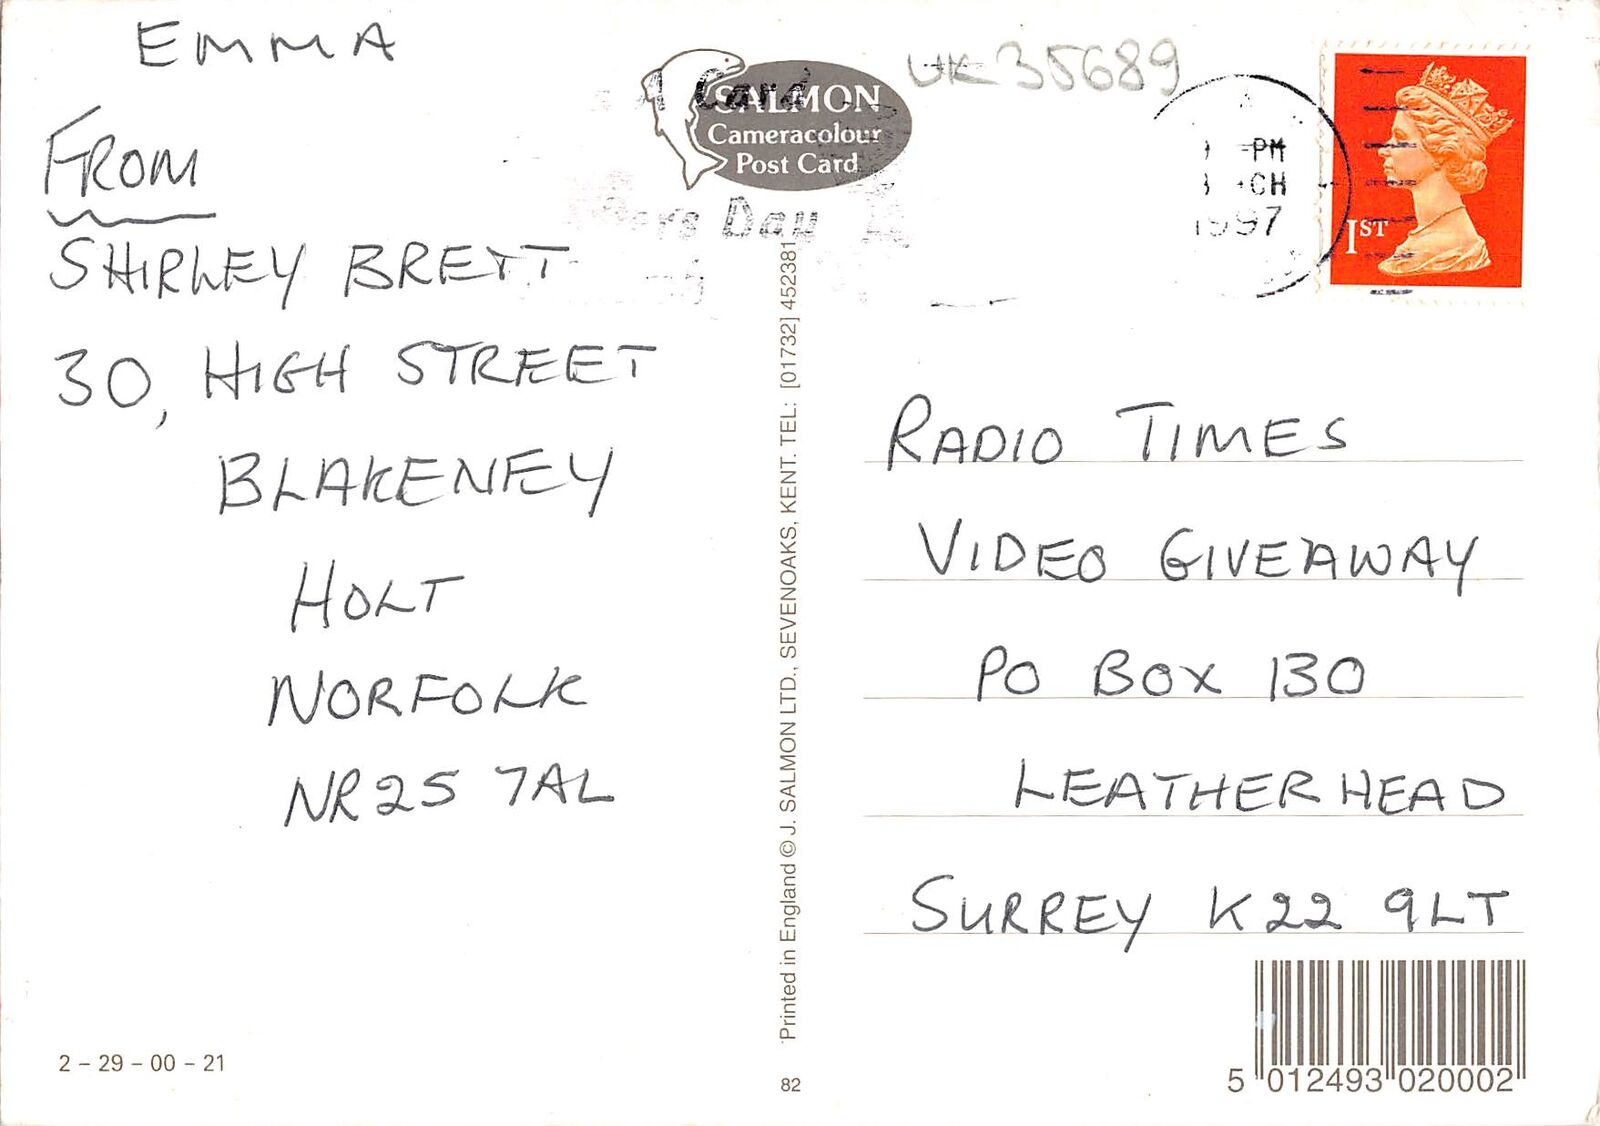 EMMA
FROM
SHIRLEY BRETT
30, HIGH STREET
BLAKENEY
HOLT
NORFOLK
NR25 7AL
2 – 29 – 00 – 21
SALMON
Cameracolour
Post Card
Card
Day
UK 35689
PM
CH
1997
1ST
Printed in England © J. SALMON LTD., SEVENOAKS, KENT. TEL: [01732] 452381
82
RADIO TIMES
VIDEO GIVEAWAY
PO BOX 130
LEATHERHEAD
SURREY K22 9LT
5 012493 020002